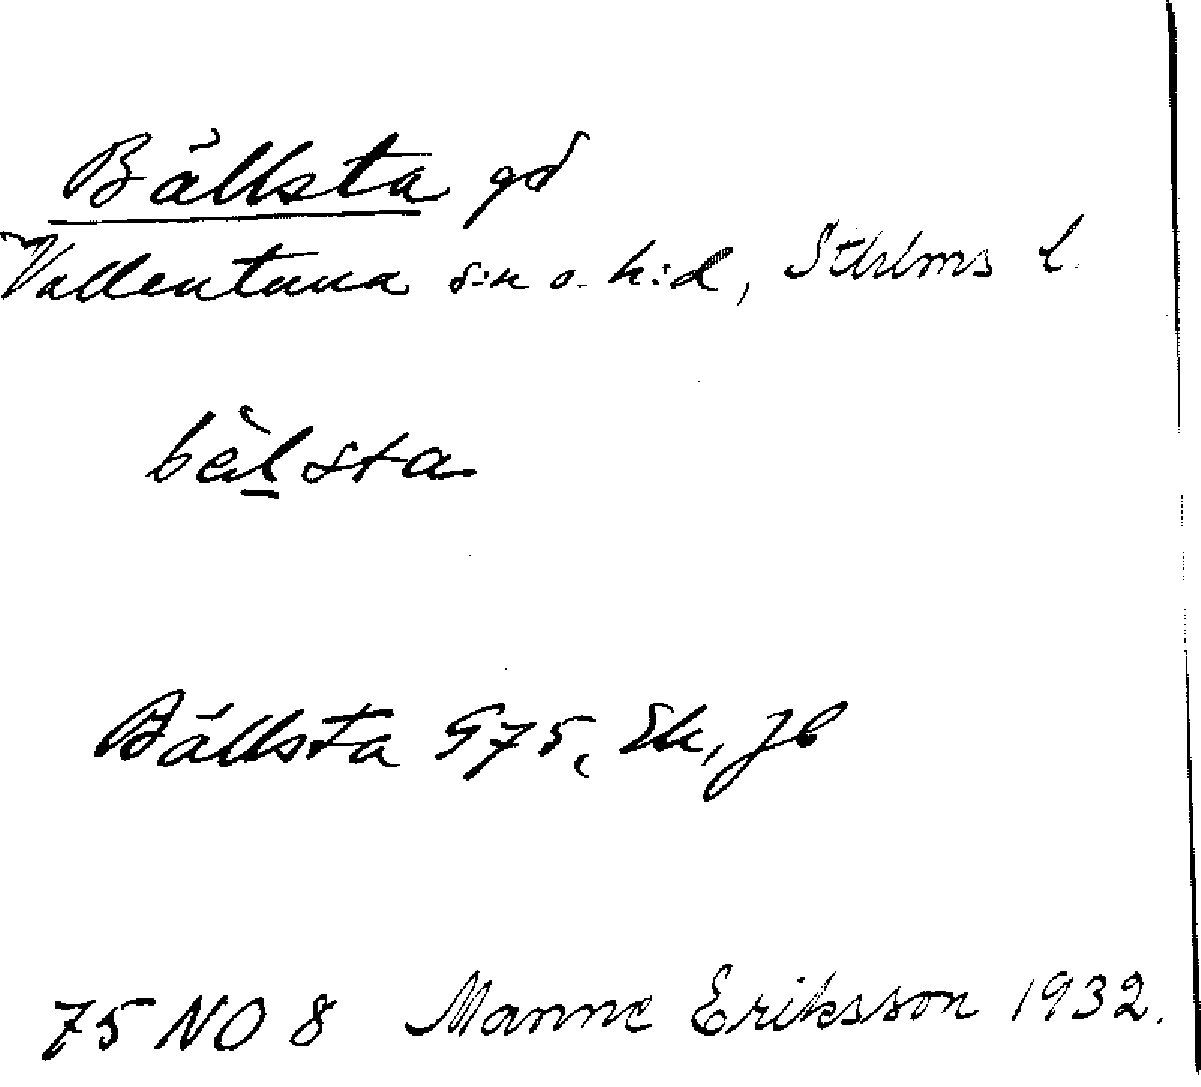 Bällsta gd
Vallentuna s:n o. h:d, Sthlms l.
bèl̲sta
Bällsta G75, Ek, Jb
75 NO 8 Manne Eriksson 1932.